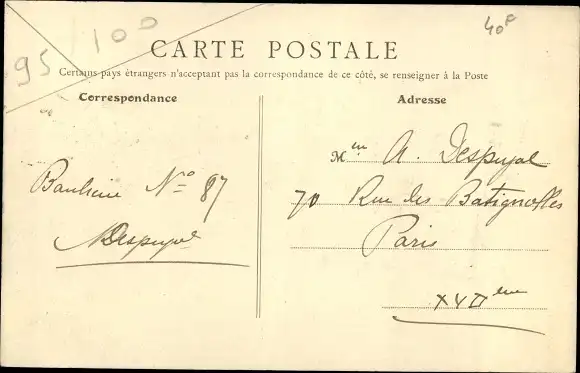 95 100
40F
CARTE POSTALE
Certains pays étrangers n'acceptant pas la correspondance de ce côté, se renseigner à la Poste
Correspondance
Banlieue No 87
Despujol
Adresse
A. Despujol
70 Rue des Batignolles
Paris
XVIIème